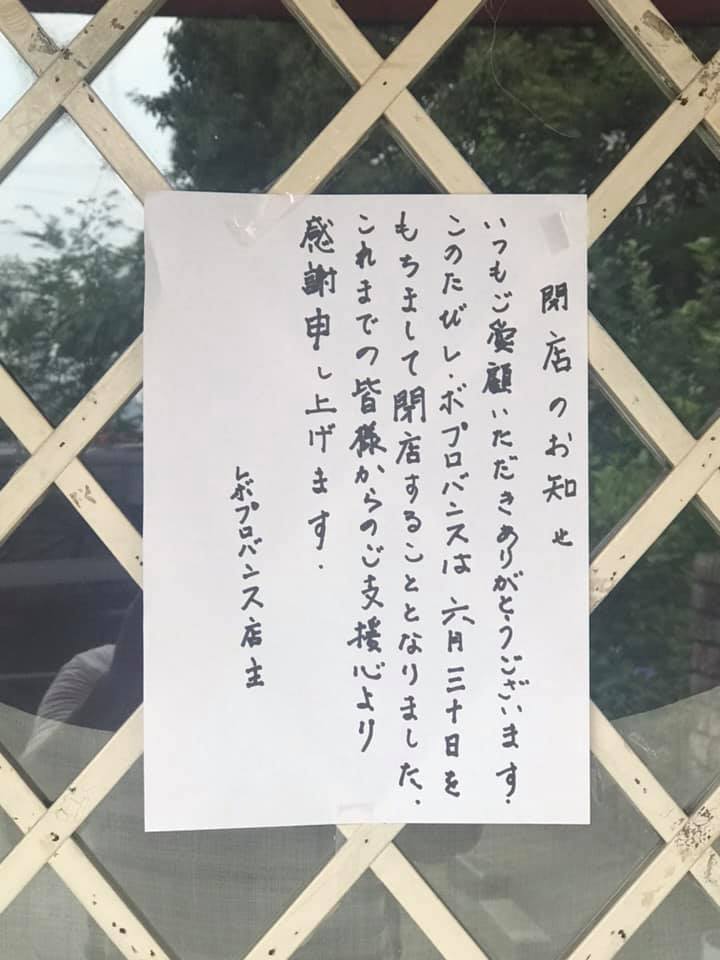 閉店のお知せ
いつもご愛顧いただきありがとうございます.
このたびレ・ボプロバンスは六月三十日を
もちまして閉店することとなりました.
これまでの皆様からのご支援心より
感謝申し上げます.
レボプロバンス店主